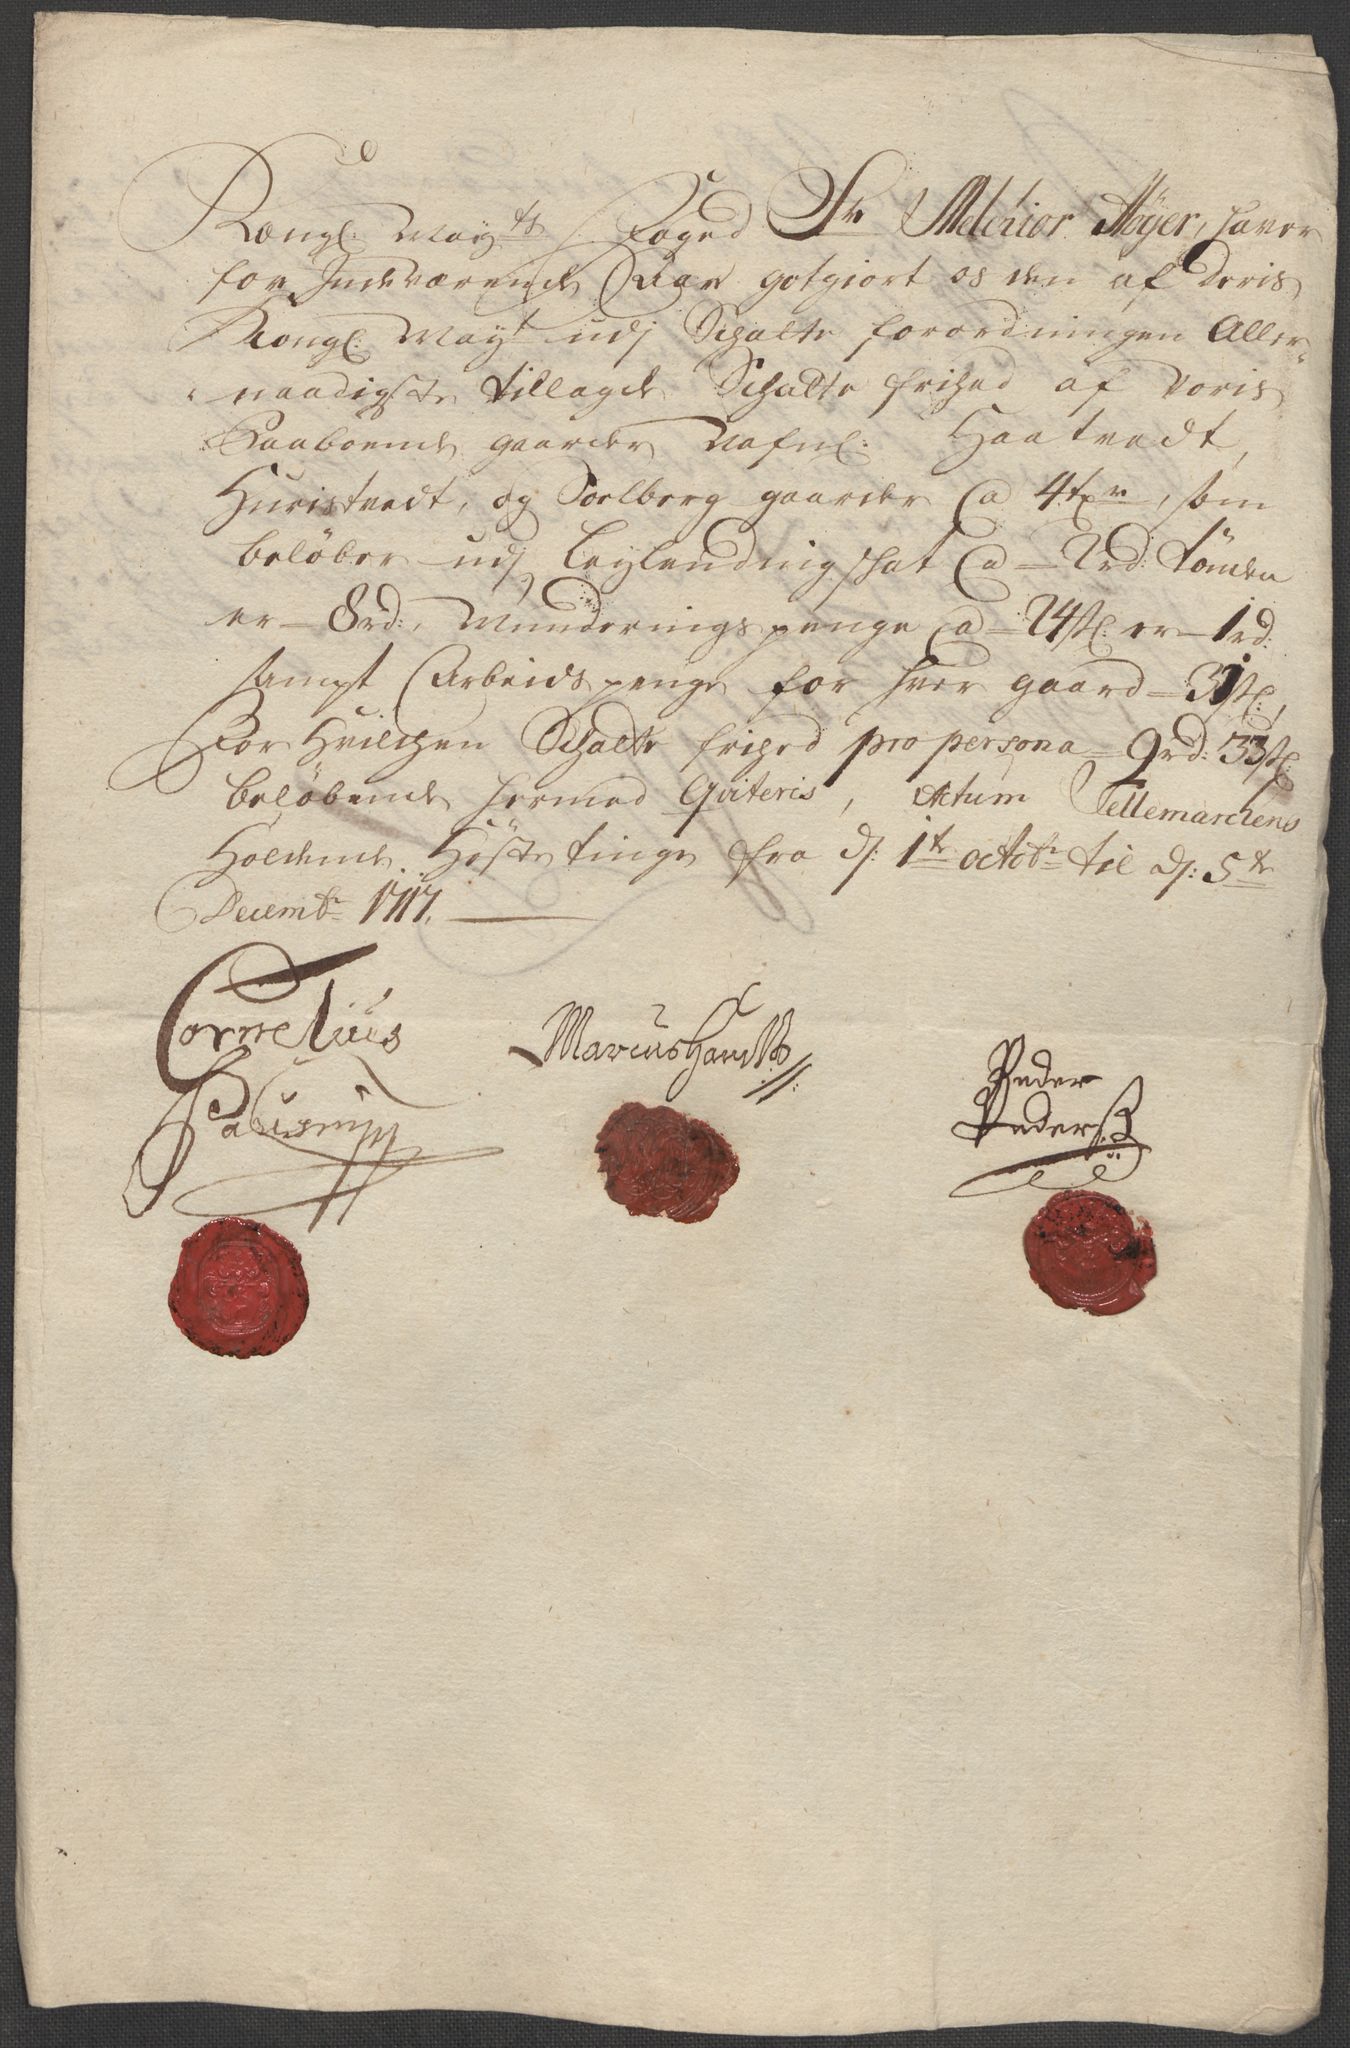 Kongl: May:ts Foged Sr Melchior Røyer, haver
for Indeværende Aar gotgiort os den af Deris
Kongl: May:t udj Schatte forordningen Aller-
naadigste tillagde Schatte frihed af voris
Paaboende gaarder Nafnl: Haatvedt,
Huristvedt, og Soelberg gaarder a 4 txr, som
beløber udj Leylendings schat a 2 rd: tønden
er 8 rd:, Munderings penge a 24 sl: er 1 rd:
sampt Arbeids penge for hver gaard 33 sl:,
For hvilchen Schatte frihed pro persona 9 rd: 33 sl:
beløbende hermed Qviteris, Actum Tellemarchens
Holdende Høste tinge fra d: 1te octobr: til d: 5te
Decembr: 1717.
Cornelius
Paus mpp
Marcus
Peder
Pederß: